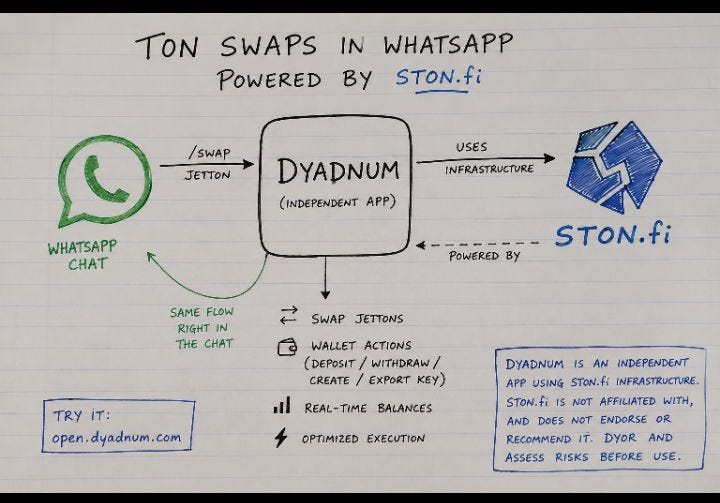 TON SWAPS IN WHATSAPP
POWERED BY STON.fi
/SWAP
JETTON
DYADNUM
(INDEPENDENT APP)
USES
INFRASTRUCTURE
POWERED BY
STON.fi
WHATSAPP
CHAT
SAME FLOW
RIGHT IN
THE CHAT
SWAP JETTONS
WALLET ACTIONS
(DEPOSIT / WITHDRAW /
CREATE / EXPORT KEY)
REAL-TIME BALANCES
OPTIMIZED EXECUTION
TRY IT:
open.dyadnum.com
DYADNUM IS AN INDEPENDENT
APP USING STON.fi INFRASTRUCTURE.
STON.fi IS NOT AFFILIATED WITH,
AND DOES NOT ENDORSE OR
RECOMMEND IT. DYOR AND
ASSESS RISKS BEFORE USE.